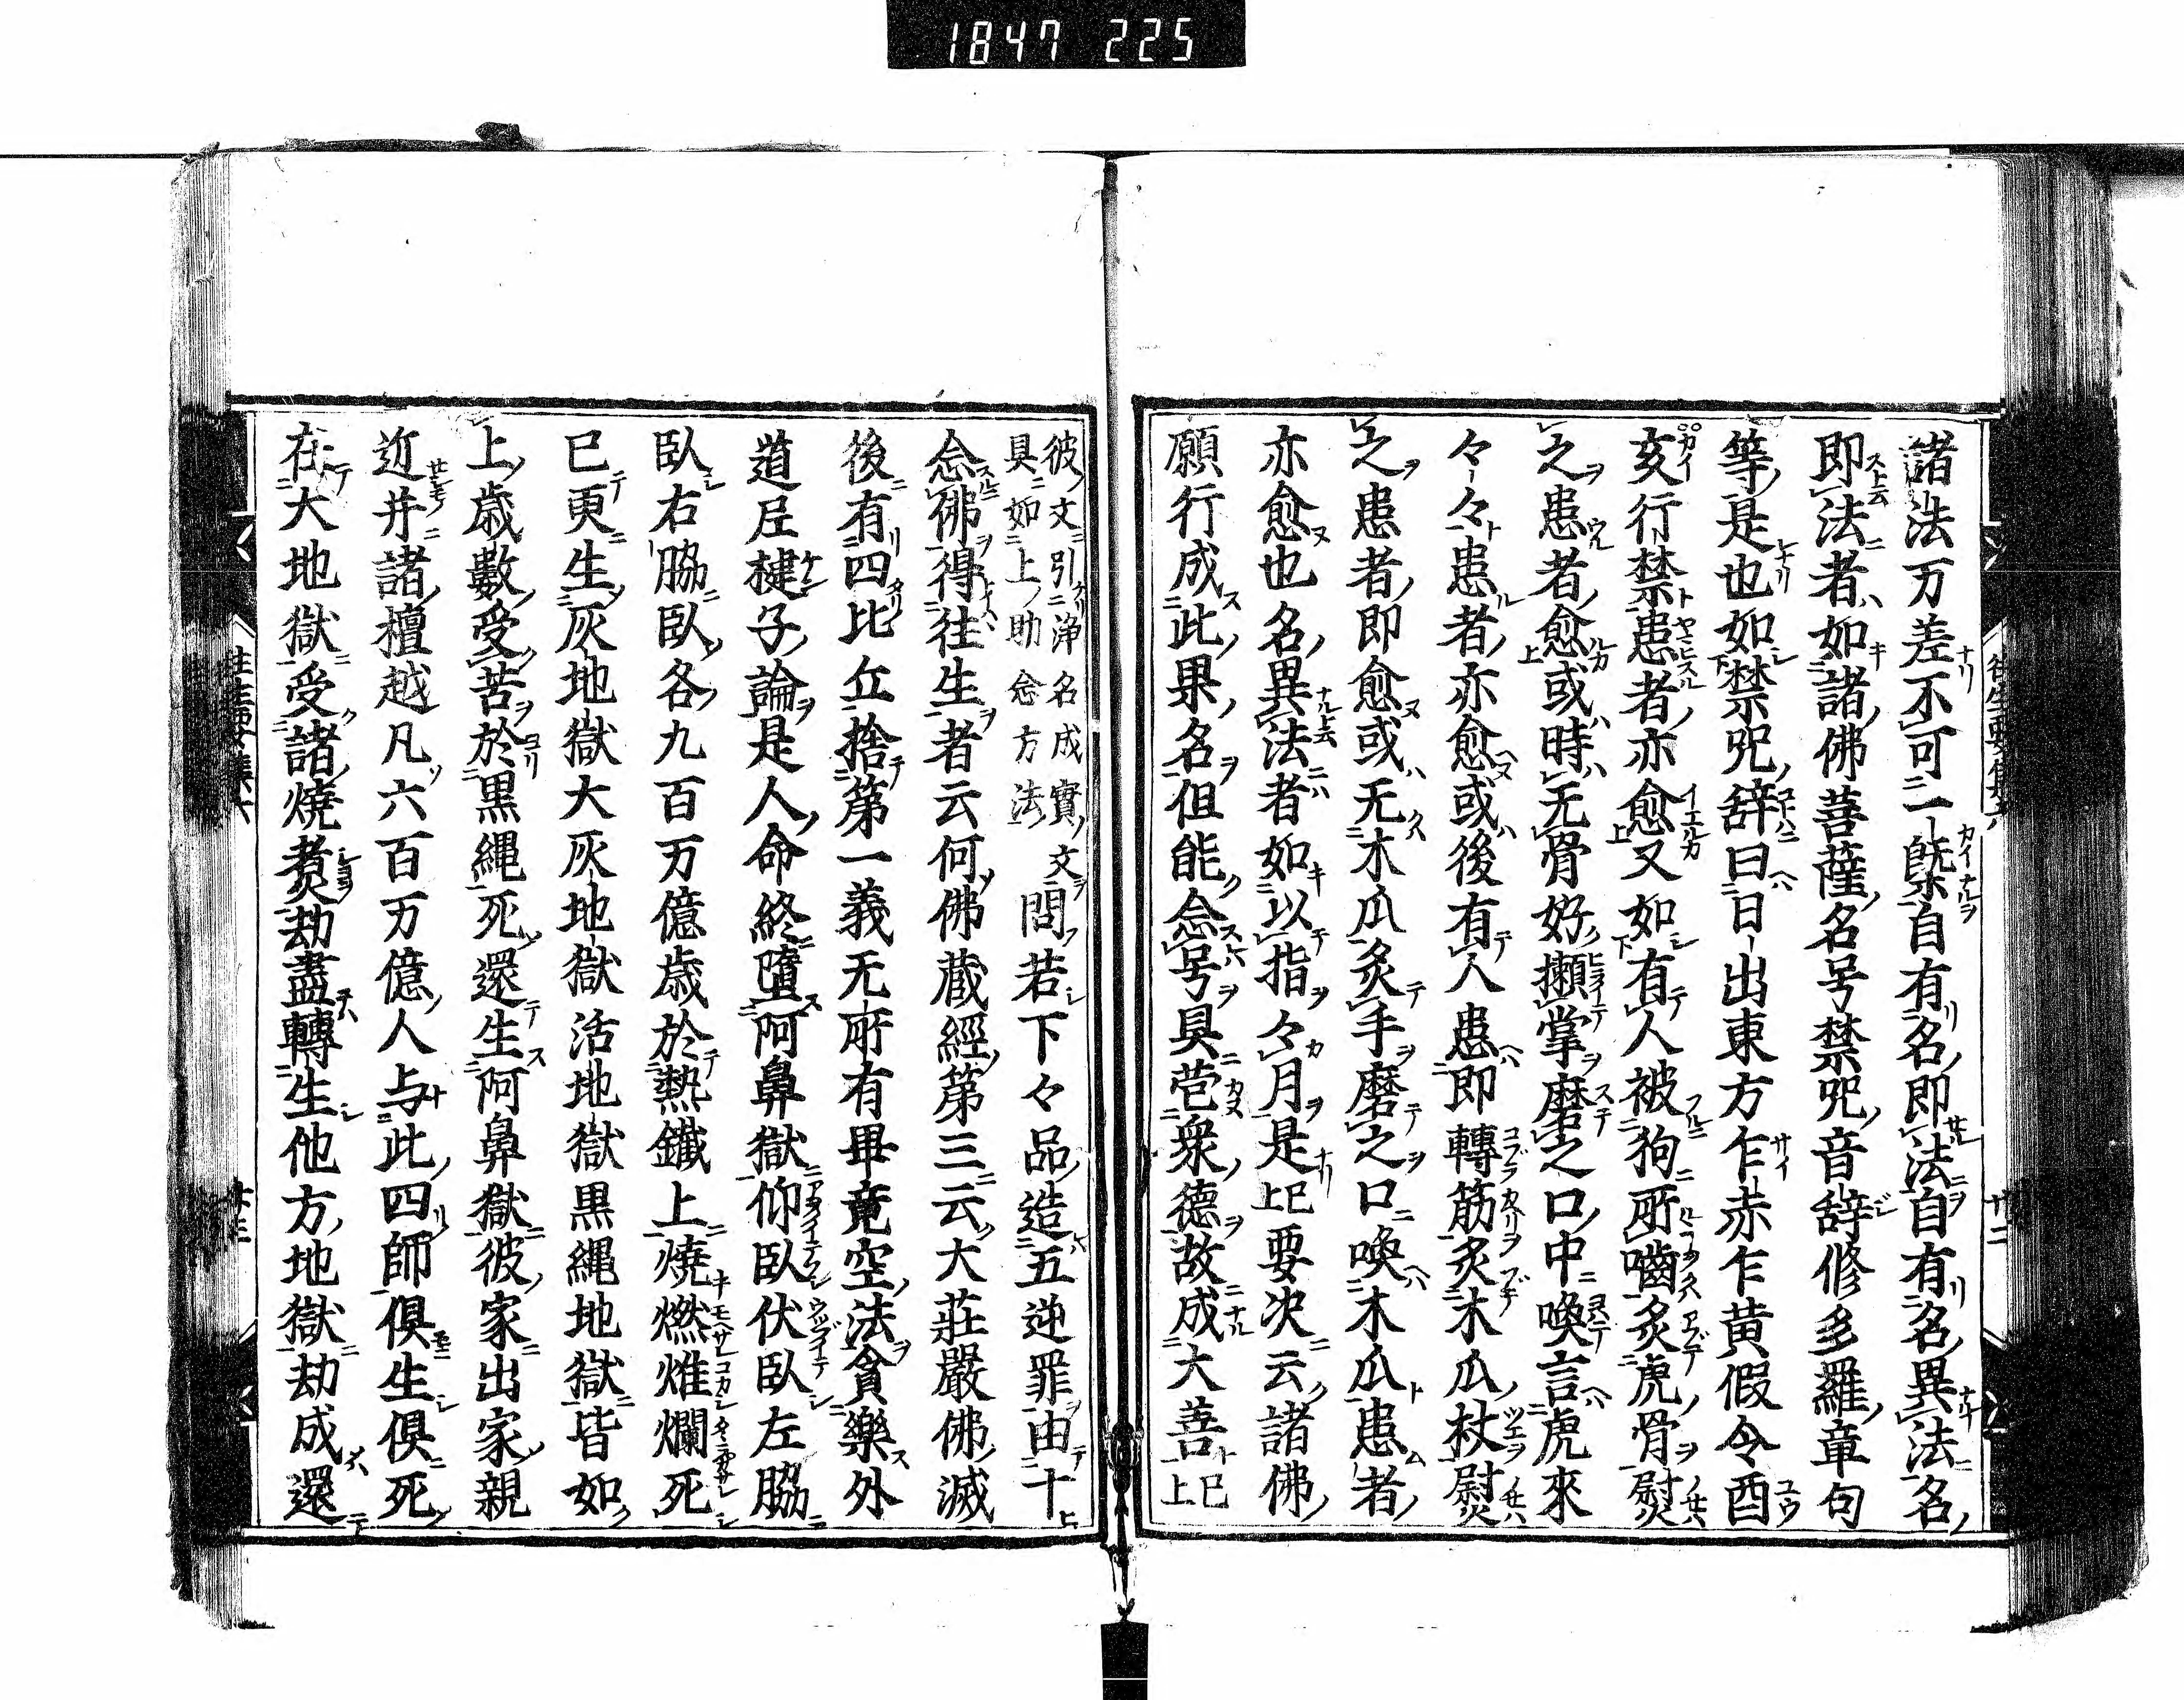 1847 225
諸法万差不可一槩自有名即法自有名異法名
即法者如諸佛菩薩名号禁咒音辞修多羅章句
等是也如禁咒辞曰日出東方乍赤乍黄假令酉
亥行禁患者亦愈又如有人被狗所嚙炙虎骨熨
之患者愈或時无骨好攋掌磨之口中喚言虎來
々々患者亦愈或後有人患即轉筋炙木瓜杖熨
之患者即愈或无木瓜炙手磨之口喚木瓜患者
亦愈也名異法者如以指々月是已上要决云諸佛
願行成此果名但能念号具苞衆德故成大善已上
彼文引淨名成實文
具如上助念方法
問若下々品造五逆罪由十
念佛得往生者云何佛蔵經第三云大莊嚴佛滅
後有四比丘捨第一義无所有畢竟空法貪樂外
道尼揵子論是人命終墮阿鼻獄仰臥伏臥左脇
臥右脇臥各九百万億歳於熱鐵上燒燃燋爛死
已更生灰地獄大灰地獄活地獄黒縄地獄皆如
上歳數受苦於黒縄死還生阿鼻獄彼家出家親
近并諸檀越凡六百万億人与此四師倶生倶死
在大地獄受諸燒煮劫盡轉生他方地獄劫成還